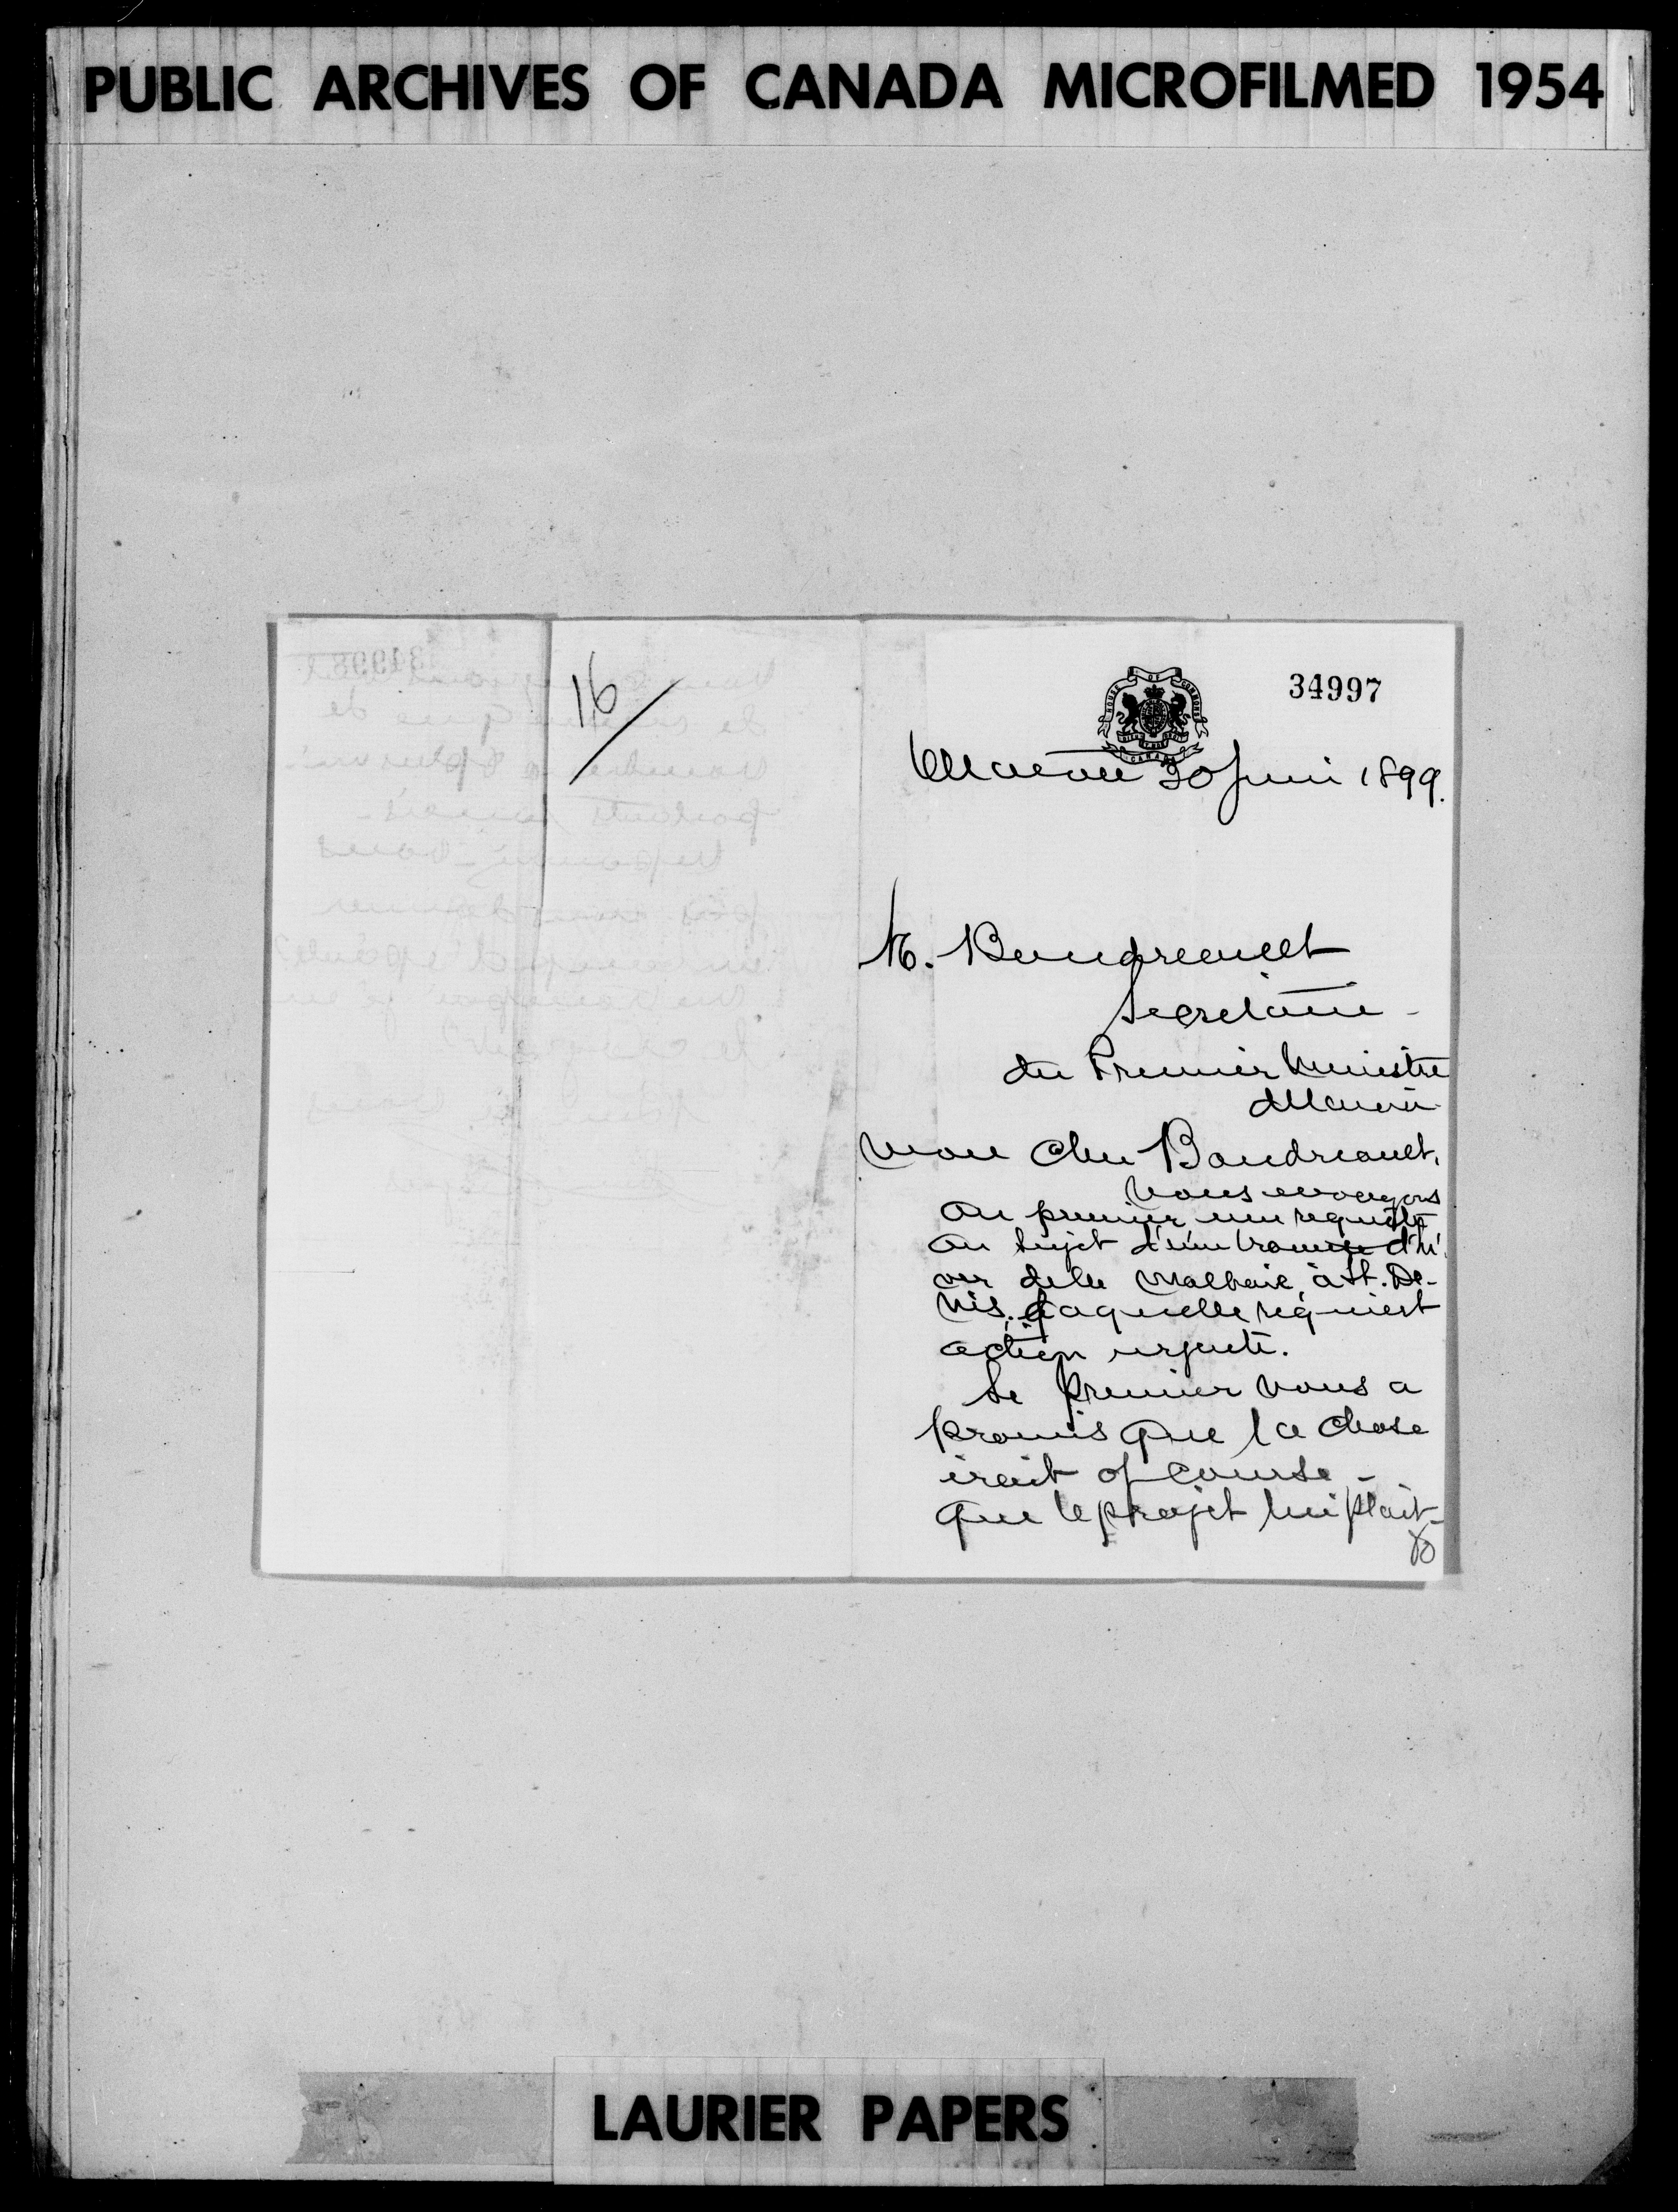 PUBLIC ARCHIVES OF CANADA MICROFILMED 1954
16/
34997
HOUSE OF COMMONS
CANADA
20 Juin 1899.
M. Boudreault
Secretaire -
du Premier Ministre
Mon Cher Boudreault,
Nous envoyons
au premier une requête
au sujet d'une traverse d'hi-
ver de la Malbaie à St. De-
nis. Laquelle requiert
action urgente.
Le Premier nous a
promis que la chose
irait of course -
que le projet lui plait -
LAURIER PAPERS